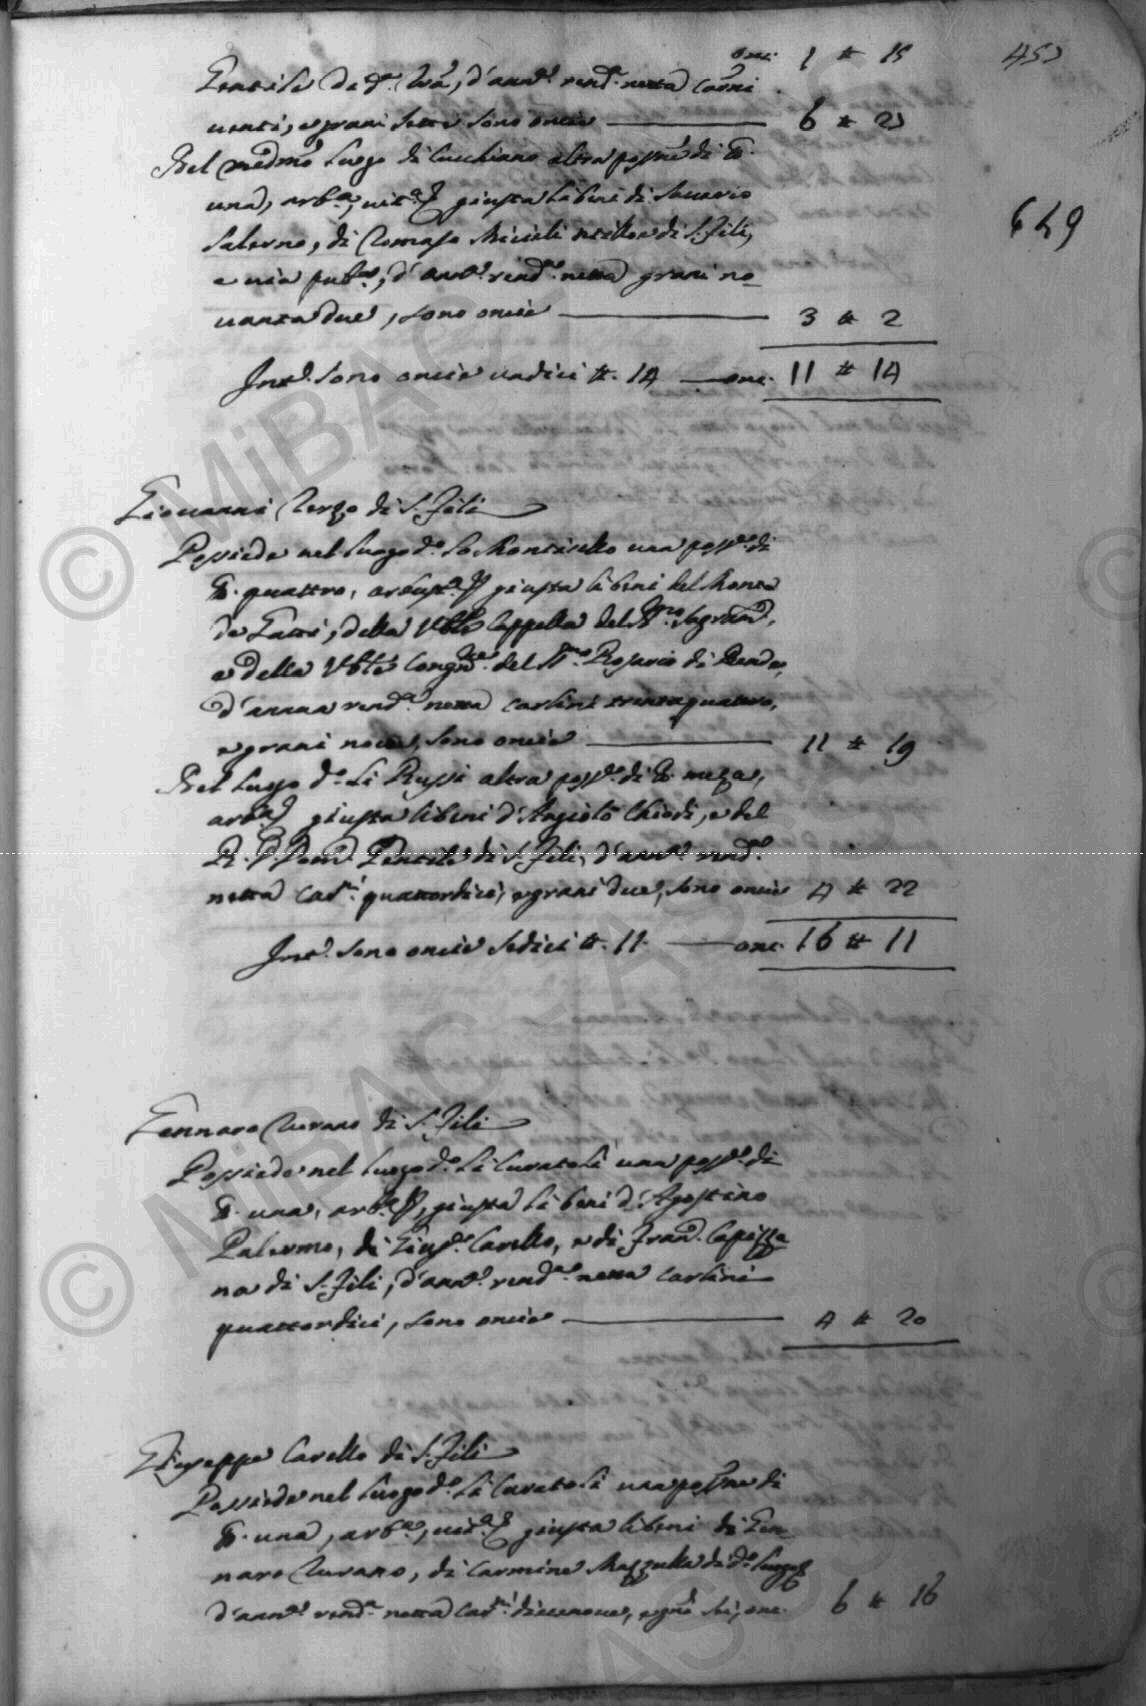 onc. 1 # 15
453
Gentile de d.ª Trã, d'ann.ª rend.ª netta Carni
venti, e grani sette sono oncie —— 6 # 23
Nel medmõ luogo di Cucchiano altra possñe di tt.
una, arb.ª, vit.ª giusta li beni di Saverio
649
Salerno, di Tomaso Miceli di S. Fili,
e via pub.ª, d'ann.ª rend.ª netta grani no-
vantadue, sono oncie —— 3 # 2
Int.º sono oncie undici #. 14 —— onc. 11 # 14
Giovanni Terzo di S. Fili
Possiede nel luogo d.º lo Monticello una poss.ⁿᵉ di
tt. quattro, arbust.ª giusta li beni del Monte
de Gatti, della Vble Cappella del SS.mo Sagram.,
e della Vble Congne. del SS.mo Rosario di Rende,
d'annua rend.ª netta carlini trentaquattro,
e grani nove, sono oncie —— 11 # 19
Nel luogo d.º li Russi altra poss.ⁿᵉ di tt. meza,
arb.ª giusta li beni d'Angiolo Chiodi, e del
R. D. Dom.º Gentile di S. Fili, d'ann.ª rend.ª
netta Car.ni quattordici, e grani due, sono oncie 4 # 22
Int.º sono oncie sedici #. 11. —— onc. 16 # 11
Gennaro Turano di S. Fili
Possiede nel luogo d.º li Curatoli una poss.ⁿᵉ di
tt. una, arb.ª, giusta li beni d'Agostino
Palermo, di Gius.ᵉ Carello, e di Fran.º Capizza-
no di S. Fili, d'ann.ª rend.ª netta carlini
quattordici, sono oncie —— 4 # 20
Giuseppe Carello di S. Fili
Possiede nel luogo d.º li Curatoli una possñe di
tt. una, arb.ª, vit.ª giusta li beni di Gen-
naro Turano, di Carmine Mazzulla di d.º luogo
d'ann.ª rend.ª netta Car.ni diecenove, e grni sei, onc. 6 # 16
© MiBAC - ASCS
© MiBAC - ASCS